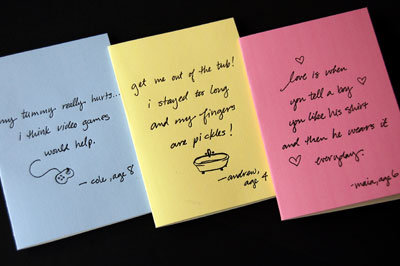 my tummy really hurts...
i think video games
would help.
— cole, age 8
get me out of the tub!
i stayed too long
and my fingers
are pickles!
— andrew,
age 4
love is when
you tell a boy
you like his shirt
and then he wears it
everyday.
- maia, age 6